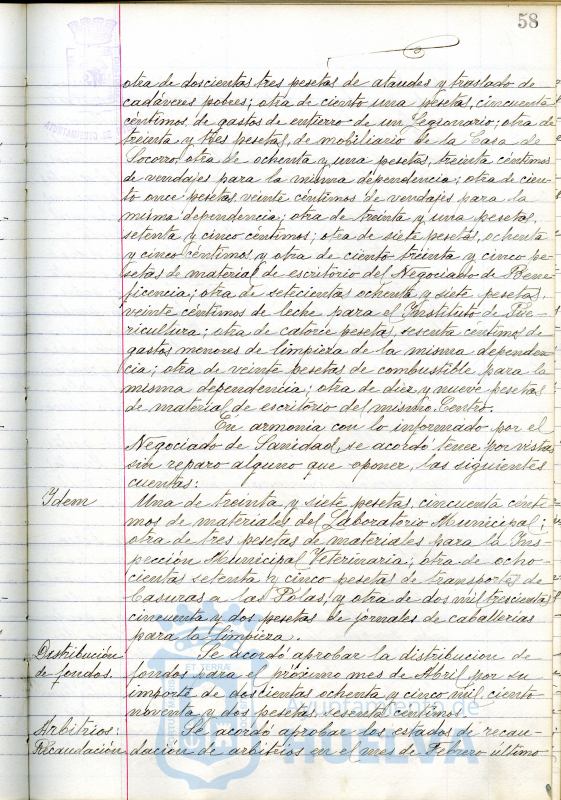 58
otra de doscientas tres pesetas de ataudes y traslado de
cadáveres pobres; otra de ciento una pesetas, cincuenta
céntimos, de gastos de entierro de un Legionario; otra de
treinta y tres pesetas, de mobiliario de la Casa de
Socorro; otra de ochenta y una pesetas, treinta céntimos
de vendajes para la misma dependencia; otra de cien-
to once pesetas, veinte céntimos de vendajes para la
misma dependencia; otra de treinta y una pesetas,
setenta y cinco céntimos; otra de siete pesetas, ochenta
y cinco céntimos y otra de ciento treinta y cinco pe-
setas de material de escritorio del Negociado de Bene-
ficencia; otra de setecientas ochenta y siete pesetas,
veinte céntimos de leche para el Instituto de Pue-
ricultura; otra de catorce pesetas, sesenta céntimos de
gastos menores de limpieza de la misma dependen-
cia; otra de veinte pesetas de combustible para la
misma dependencia; otra de diez y nueve pesetas
de material de escritorio del mismo Centro.
En armonia con lo informado por el
Negociado de Sanidad, se acordó tener por vistas
sin reparo alguno que oponer, las siguientes
cuentas:
Idem
Una de treinta y siete pesetas, cincuenta cénti-
mos de materiales del Laboratorio Municipal;
otra de tres pesetas de materiales para la Ins-
pección Municipal Veterinaria; otra de ocho-
cientas setenta y cinco pesetas de transportes de
basuras a las Polas, y otra de dos mil trescientas
cincuenta y dos pesetas de jornales de caballerias
para la limpieza.
Distribución
de fondos.
Se acordó aprobar la distribucion de
fondos para el próximo mes de Abril por su
importe de doscientas ochenta y cinco mil ciento
noventa y dos pesetas, sesenta céntimos.
Arbitrios:
Recaudación
Se acordó aprobar los estados de recau-
dación de arbitrios en el mes de Febrero último
AYUNTAMIENTO DE
ET TERRÆ
Ayuntamiento de
HUELVA